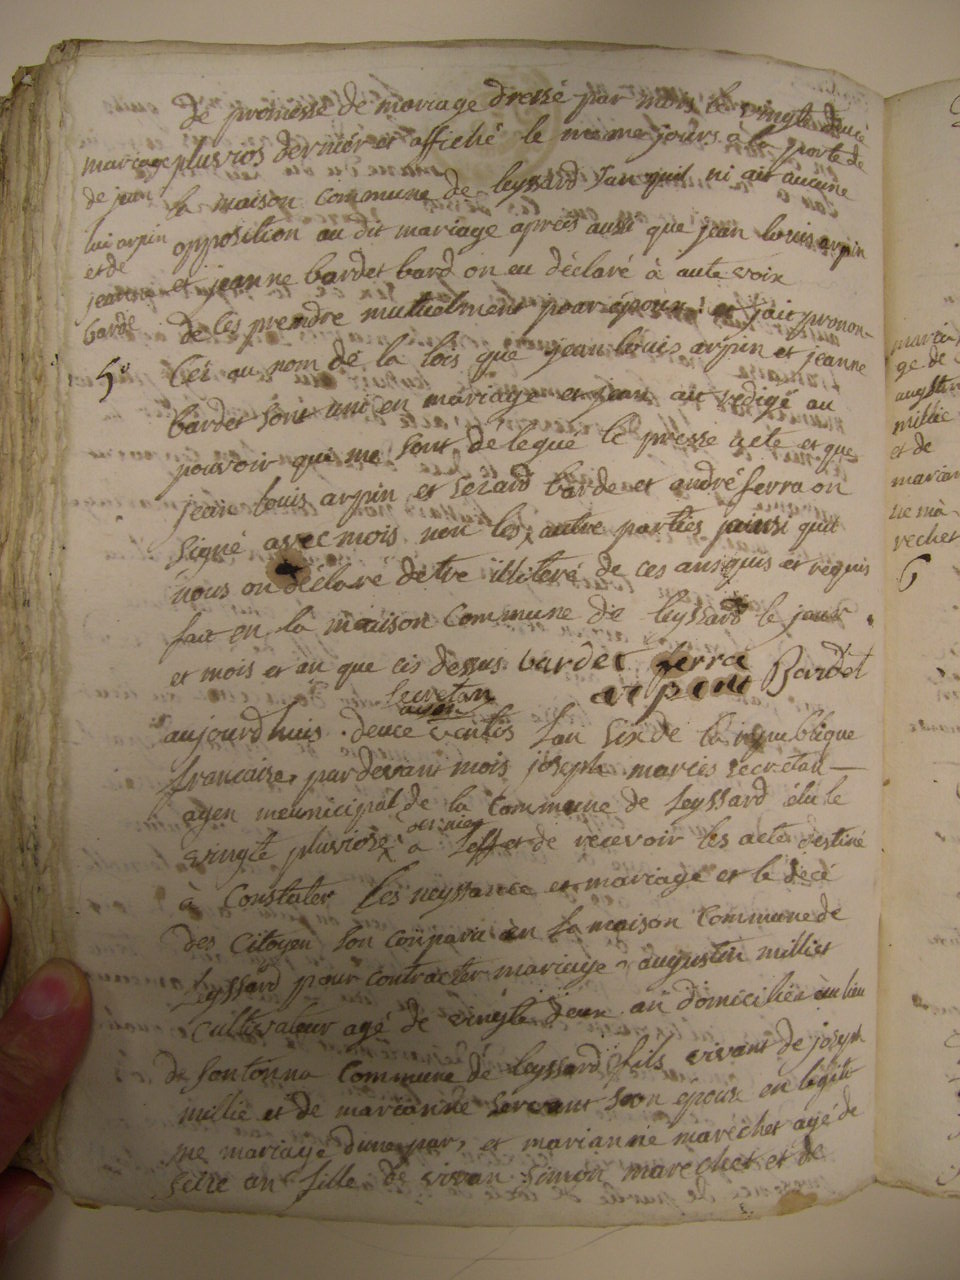 de promesse de mariage dressé par mois le vingte deuce
pluvios derniér et affiché le meme jours a la porte de
la maison commune de leyssard san quil ni ait aucune
opposition au dit mariage aprés ausi que jean louis arpin
et jeanne bardet bard on eu déclaré à aute voix
de les prendre mutuelment pour époux : et jait pronon-
céz au nom de la lois que jean louis arpin et jeanne
bardet sont uni en mariage et jean ait redigé au
pouvoir qui me sont délégué le presse acte et que
jean louis arpin et bardet et andré serra on
signé avec mois non les autre parties jainsi quil
nous on déclaré detre illiteré de ces anquis et requis
fait en la maison commune de leyssard le jour
et mois et an que cis dessus bardet serra
arpin Bardet
mariage
de jean
lui arpin
et de
jeanne
barde
5e
secretan
ayen
aujourdhuis deuce ventos lan six de la republique
francaise pardevant mois joseph maries secretan
agen meunicipal de la commune de leyssard élu le
dernier
vingte pluviose a leffet de recevoir les acte destiné
à constater les neyssance et mariage et le décé
des citoyen son conparu en la maison commune de
Leyssard pour contracter mariage augustin milliet
cultivateur agé de vingte deux an domiciliéz au lieu
de sontonna commune de leyssard fils vivant de joseph
millie et de marianne servant son epoux en légite
me mariage dune par, et marianne maréchet agé de
seize an fille de vivan simon marechet et de
maria
ge de
augustin
millie
et de
marian
ne ma-
rechet
6